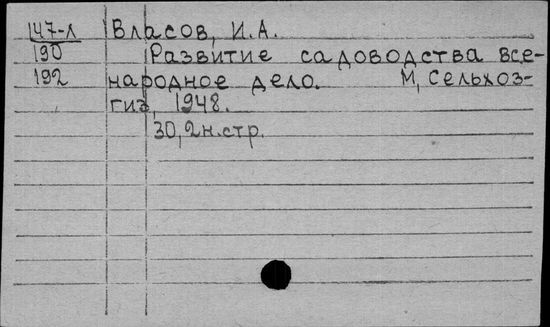 147-л Власов, И.А.
190 Развитие садоводства все-
192 народное дело. М, Сельхоз-
гиз, 1948.
30, 2н.стр.